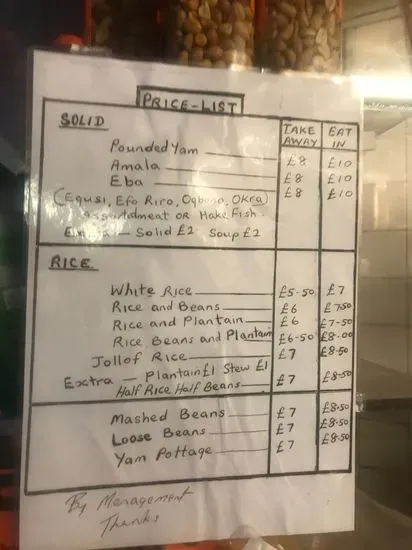 PRICE-LIST
SOLID TAKE AWAY EAT IN
Pounded Yam £8 £10
Amala £8 £10
Eba £8 £10
(Egusi, Efo Riro, Ogbono, Okra)
Assortdment OR Hake Fish.
Extra - Solid £2 Soup £2
RICE
White Rice £5-50 £7
Rice and Beans £6 £7.50
Rice and Plantain £6 £7-50
Rice Beans and Plantain £6-50 £8.00
Jollof Rice £7 £8.50
Extra - Plantain £1 Stew £1
Half Rice Half Beans £7 £8-50
Mashed Beans £7 £8.50
Loose Beans £7 £8.50
Yam Pottage £7 £8.50
By Management
Thanks